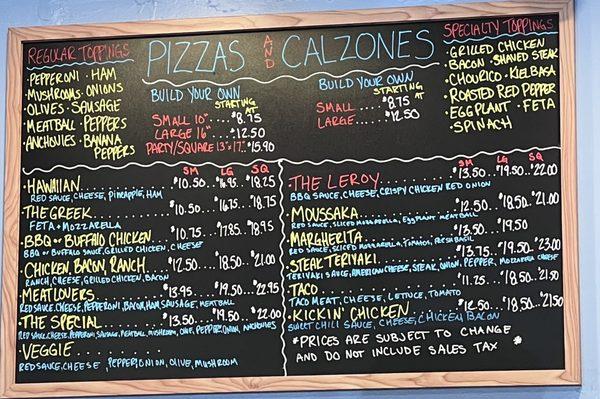 REGULAR TOPPINGS
· PEPPERONI · HAM
· MUSHROOMS · ONIONS
· OLIVES · SAUSAGE
· MEATBALL · PEPPERS
· ANCHOVIES · BANANA
PEPPERS
PIZZAS AND CALZONES
BUILD YOUR OWN
STARTING AT
SMALL 10" ... $8.75
LARGE 16" ... $12.50
PARTY/SQUARE 13"x17" ... $15.90
BUILD YOUR OWN
STARTING AT
SMALL ... $8.75
LARGE ... $12.50
SPECIALTY TOPPINGS
· GRILLED CHICKEN
· BACON · SHAVED STEAK
· CHOURICO · KIELBASA
· ROASTED RED PEPPER
· EGGPLANT · FETA
· SPINACH
SM LG SQ
· HAWAIIAN ... $10.50 ... $16.95 ... $18.75
RED SAUCE, CHEESE, PINEAPPLE, HAM
· THE GREEK ... $10.50 ... $16.75 ... $18.75
FETA + MOZZARELLA
· BBQ OR BUFFALO CHICKEN ... $10.75 ... $17.85 ... $18.95
BBQ OR BUFFALO SAUCE, GRILLED CHICKEN, CHEESE
· CHICKEN, BACON, RANCH ... $12.50 ... $18.50 ... $21.00
RANCH, CHEESE, GRILLED CHICKEN, BACON
· MEATLOVERS ... $13.95 ... $19.50 ... $22.95
RED SAUCE, CHEESE, PEPPERONI, BACON, HAM, SAUSAGE, MEATBALL
· THE SPECIAL ... $13.50 ... $19.50 ... $22.00
RED SAUCE, CHEESE, PEPPERONI, SAUSAGE, MEATBALL, MUSHROOM, OLIVE, PEPPER, ONION, ANCHOVIES
· VEGGIE ...
RED SAUCE, CHEESE, PEPPER, ONION, OLIVE, MUSHROOM
SM LG SQ
· THE LEROY ... $13.50 ... $19.50 ... $22.00
BBQ SAUCE, CHEESE, CRISPY CHICKEN RED ONION
· MOUSSAKA ... $12.50 ... $18.50 ... $21.00
RED SAUCE, SLICED MOZZARELLA, EGGPLANT MEATBALL
· MARGHERITA ... $13.50 ... $19.50
RED SAUCE, SLICED MOZZARELLA, TOMATO, FRESH BASIL
· STEAK TERIYAKI ... $13.75 ... $19.50 ... $23.00
TERIYAKI SAUCE, AMERICAN CHEESE, STEAK, ONION, PEPPER, MOZZARELLA CHEESE
· TACO ... $11.75 ... $18.50 ... $21.50
TACO MEAT, CHEESE, LETTUCE, TOMATO
· KICKIN' CHICKEN ... $12.50 ... $18.50 ... $21.50
SWEET CHILI SAUCE, CHEESE, CHICKEN, BACON
* PRICES ARE SUBJECT TO CHANGE
AND DO NOT INCLUDE SALES TAX *